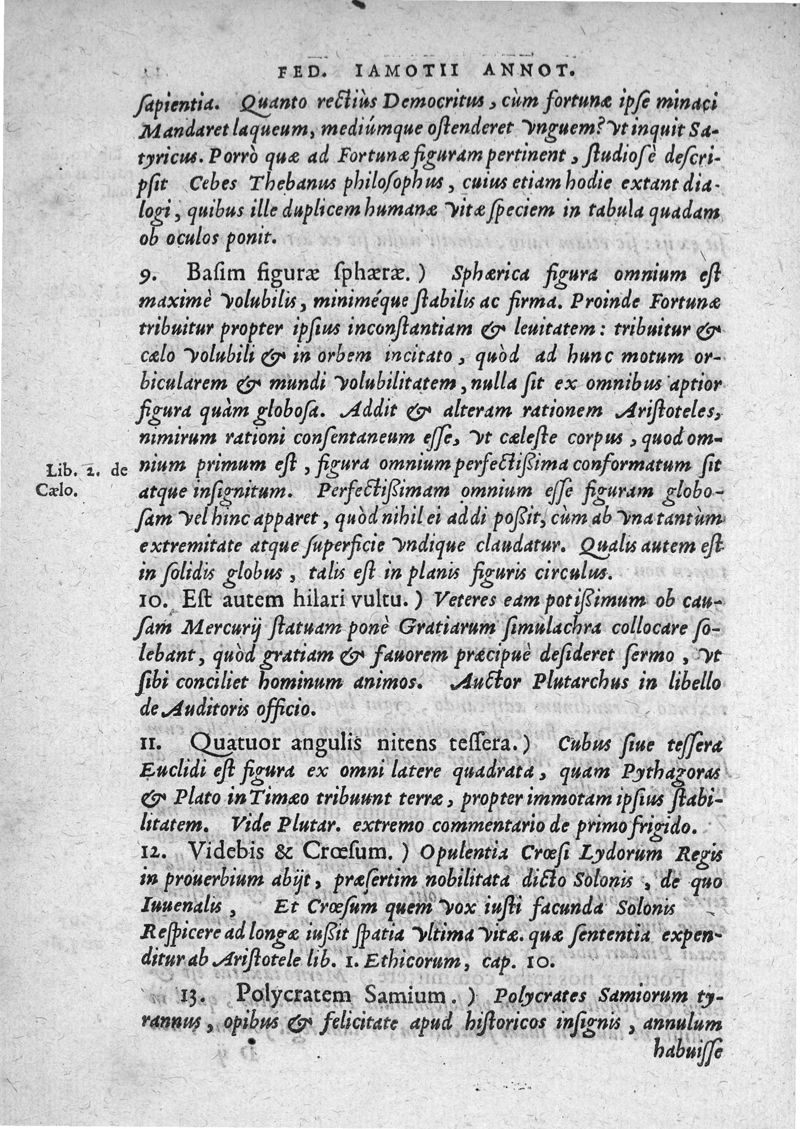 FED. IAMOTII ANNOT.
sapientia. Quanto rectiùs Democritus, cùm fortunæ ipse minaci
Mandaret laqueum, mediúmque ostenderet vnguem? vt inquit Sa-
tyricus. Porrò quæ ad Fortunæ figuram pertinent, studiosè descri-
psit Cebes Thebanus philosophus, cuius etiam hodie extant dia-
logi, quibus ille duplicem humanæ vitæ speciem in tabula quadam
ob oculos ponit.
9. Basim figuræ sphæræ.) Sphærica figura omnium est
maximè volubilis, miniméque stabilis ac firma. Proinde Fortunæ
tribuitur propter ipsius inconstantiam & leuitatem: tribuitur &
cælo volubili & in orbem incitato, quòd ad hunc motum or-
bicularem & mundi volubilitatem, nulla sit ex omnibus aptior
figura quàm globosa. Addit & alteram rationem Aristoteles,
nimirum rationi consentaneum esse, vt cæleste corpus, quod om-
Lib. 2. de
Cælo.
nium primum est, figura omnium perfectißima conformatum sit
atque insignitum. Perfectißimam omnium esse figuram globo-
sam vel hinc apparet, quòd nihil ei addi poßit, cùm ab vna tantùm
extremitate atque superficie vndique claudatur. Qualis autem est
in solidis globus, talis est in planis figuris circulus.
10. Est autem hilari vultu.) Veteres eam potißimum ob cau-
sam Mercurij statuam ponè Gratiarum simulachra collocare so-
lebant, quòd gratiam & fauorem præcipuè desideret sermo, vt
sibi conciliet hominum animos. Auctor Plutarchus in libello
de Auditoris officio.
11. Quatuor angulis nitens tessera.) Cubus siue tessera
Euclidi est figura ex omni latere quadrata, quam Pythagoras
& Plato in Timæo tribuunt terræ, propter immotam ipsius stabi-
litatem. Vide Plutar. extremo commentario de primo frigido.
12. Videbis & Crœsum.) Opulentia Crœsi Lydorum Regis
in prouerbium abijt, præsertim nobilitata dicto Solonis, de quo
Iuuenalis, Et Crœsum quem vox iusti facunda Solonis
Respicere ad longæ iußit spatia vltima vitæ. quæ sententia expen-
ditur ab Aristotele lib. 1. Ethicorum, cap. 10.
13. Polycratem Samium.) Polycrates Samiorum ty-
rannus, opibus & felicitate apud historicos insignis, annulum
habuisse